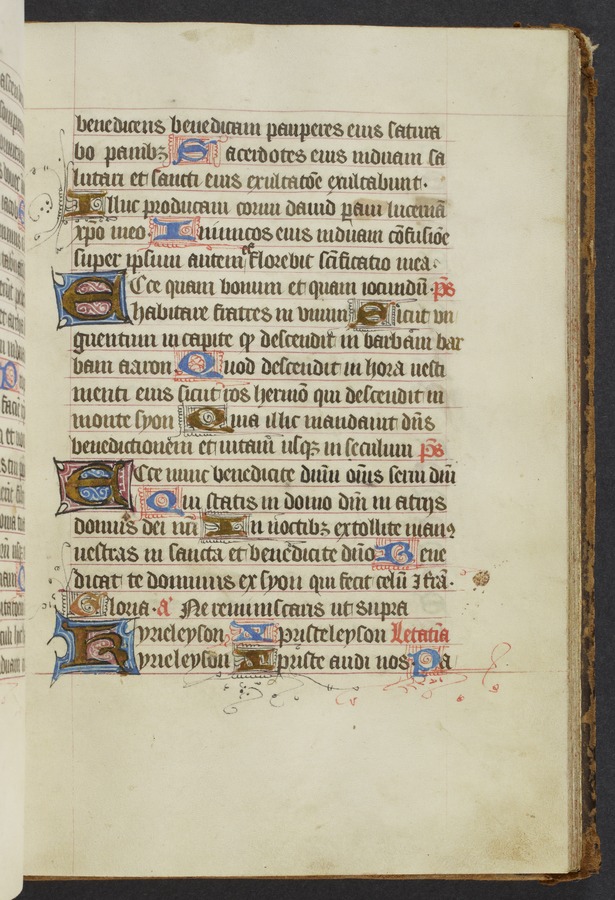 benedicens benedicam pauperes eius satura
bo panibꝫ Sacerdotes eius induam sa
lutari et sancti eius exultatõe exultabunt.
Illuc producam cornu dauid paui lucernã
xpo meo. Inimicos eius induam cõfusiõe
super ipsum autem efflorebit sc̃ificatio mea.
Ecce quam bonum et quam iocundũ. p̃s
habitare fratres in vnum Sicut vn
guentum in capite qđ descendit in barbam bar
bam aaron Quod descendit in hora uesti
menti eius sicut ros hermõ qui descendit in
monte syon Qm̃a illic mandauit dñs
benedictionem et uitam usqꝫ in seculum p̃s
Ecce nunc benedicite dñm om̃s serui dñi
Qui statis in domo dñi in atrijs
domus dei nr̃i In noctibꝫ extollite manꝰ
uestras in sancta et benedicite dño Bene
dicat te dominus ex syon qui fecit celũ ⁊ trã.
Gloria. a᷑ Ne reminiscaris ut supra
Kyrieleyson Xpristeleyson Letatia
Kyrieleyson Xpriste audi nos Pa